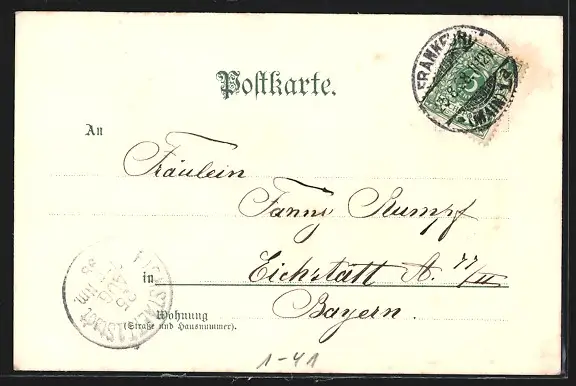 FRANKFURT
(MAIN) 1
Postkarte.
An
Fräulein
Fanny Rumpf
in Eichstätt A. 77/II
Bayern.
Wohnung
(Straße und Hausnummer).
EICHSTÄTT 1 Stadt
25 AUG
Nm.
98
1-41